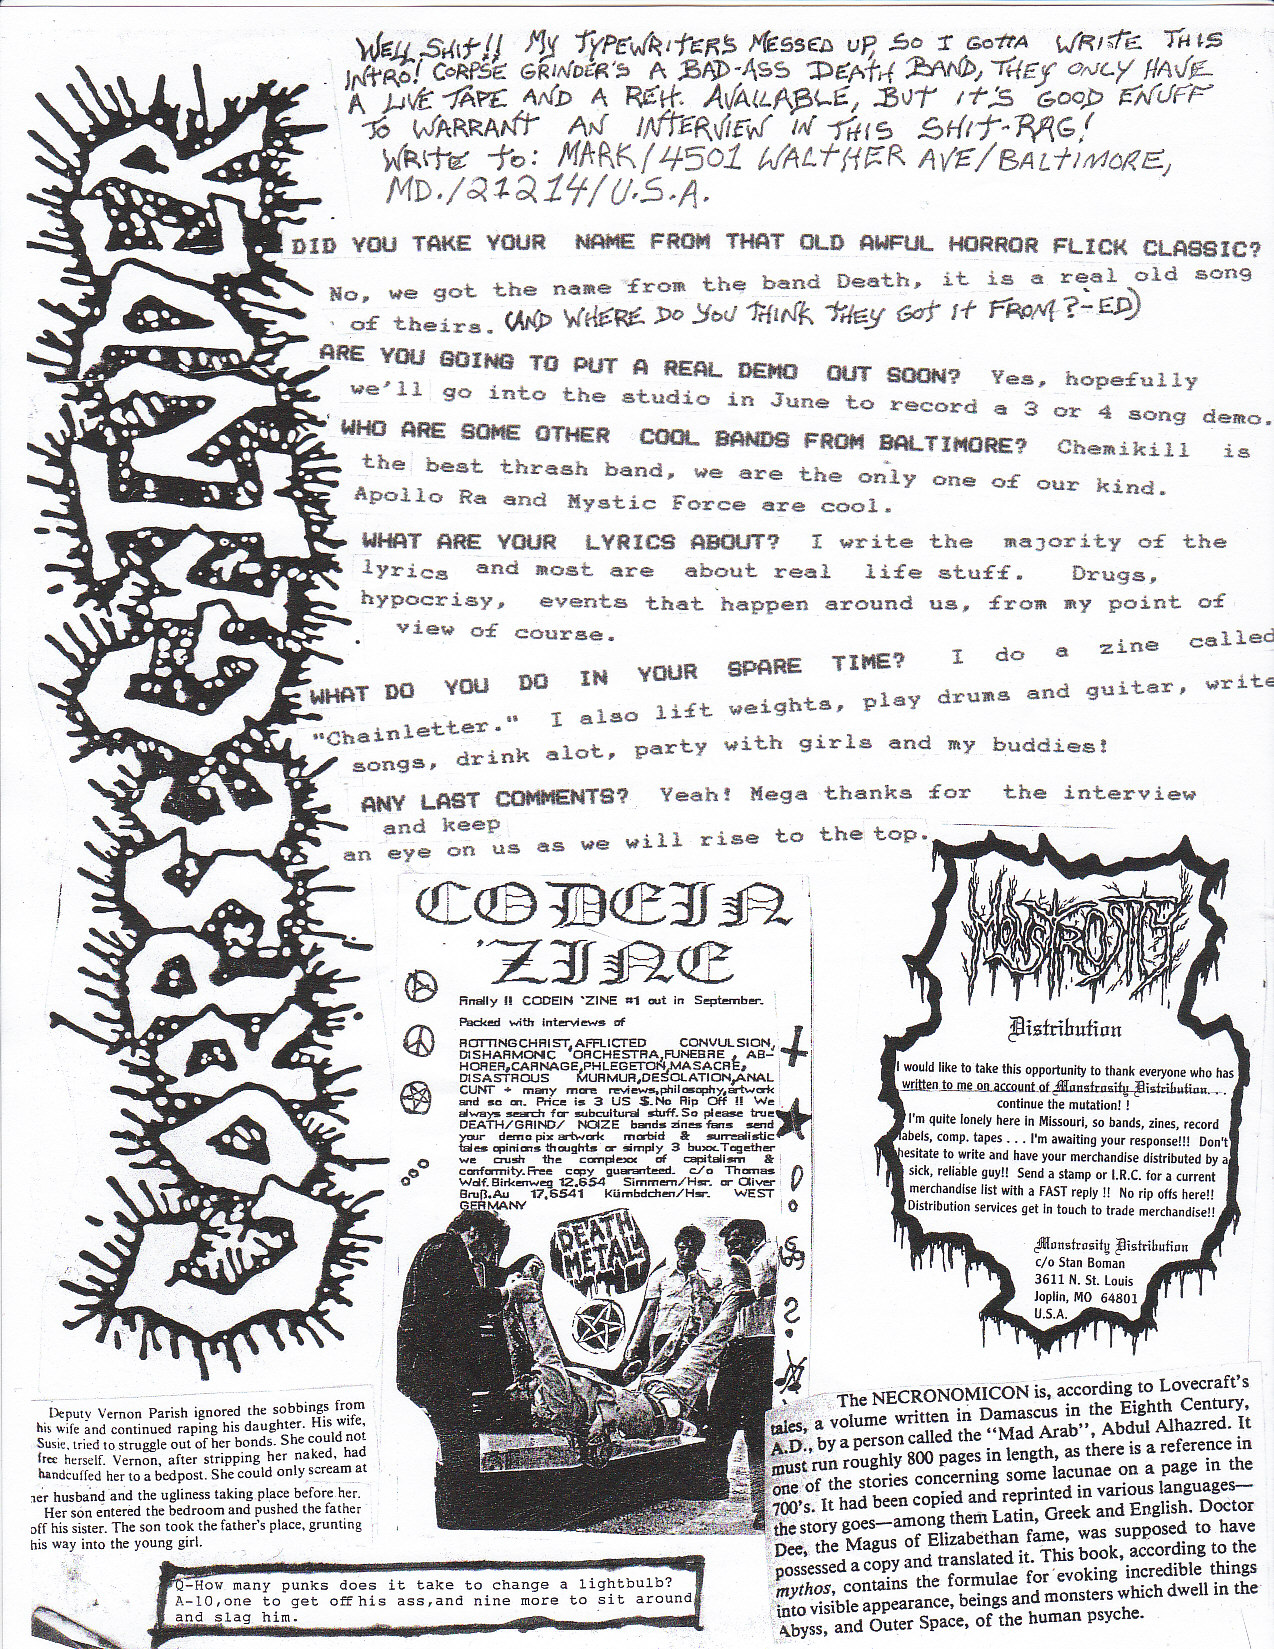 CORPSE GRINDER
WELL SHIT!! MY TYPEWRITER'S MESSED UP, SO I GOTTA WRITE THIS
INTRO! CORPSE GRINDER'S A BAD-ASS DEATH BAND, THEY ONLY HAVE
A LIVE TAPE AND A REH. AVAILABLE, BUT IT'S GOOD ENUFF
TO WARRANT AN INTERVIEW IN THIS SHIT-RAG!
WRITE TO: MARK/4501 WALTHER AVE/BALTIMORE,
MD./21214/U.S.A.
DID YOU TAKE YOUR NAME FROM THAT OLD AWFUL HORROR FLICK CLASSIC?
No, we got the name from the band Death, it is a real old song
of theirs. (AND WHERE DO YOU THINK THEY GOT IT FROM?-ED)
ARE YOU GOING TO PUT A REAL DEMO OUT SOON? Yes, hopefully
we'll go into the studio in June to record a 3 or 4 song demo.
WHO ARE SOME OTHER COOL BANDS FROM BALTIMORE? Chemikill is
the best thrash band, we are the only one of our kind.
Apollo Ra and Mystic Force are cool.
WHAT ARE YOUR LYRICS ABOUT? I write the majority of the
lyrics and most are about real life stuff. Drugs,
hypocrisy, events that happen around us, from my point of
view of course.
WHAT DO YOU DO IN YOUR SPARE TIME? I do a zine called
"Chainletter." I also lift weights, play drums and guitar, write
songs, drink alot, party with girls and my buddies!
ANY LAST COMMENTS? Yeah! Mega thanks for the interview
and keep
an eye on us as we will rise to the top.
CODEIN
'ZINE
Finally !! CODEIN 'ZINE #1 out in September.
Packed with interviews of
ROTTINGCHRIST,AFFLICTED CONVULSION,
DISHARMONIC ORCHESTRA,FUNEBRE , AB-
HORER,CARNAGE,PHLEGETON,MASACRE,
DISASTROUS MURMUR,DESOLATION,ANAL
CUNT + many more reviews,philosophy,artwork
and so on. Price is 3 US $.No Rip Off !! We
always search for subcultural stuff.So please true
DEATH/GRIND/ NOIZE bands zines fans send
your demo pix artwork morbid & surrealistic
tales opinions thoughts or simply 3 buxx.Together
we crush the complexx of capitalism &
conformity.Free copy guaranteed. c/o Thomas
Wdf.Birkenweg 12,654 Simmern/Hsr. or Oliver
Bruß,Au 17,6541 Kümbdchen/Hsr. WEST
GERMANY
DEATH
METAL
MONSTROSITY
Distribution
I would like to take this opportunity to thank everyone who has
written to me on account of Monstrosity Distribution. . .
continue the mutation! !
I'm quite lonely here in Missouri, so bands, zines, record
labels, comp. tapes . . . I'm awaiting your response!!! Don't
hesitate to write and have your merchandise distributed by a
sick, reliable guy!! Send a stamp or I.R.C. for a current
merchandise list with a FAST reply !! No rip offs here!!
Distribution services get in touch to trade merchandise!!
Monstrosity Distribution
c/o Stan Boman
3611 N. St. Louis
Joplin, MO 64801
U.S.A.
The NECRONOMICON is, according to Lovecraft's
tales, a volume written in Damascus in the Eighth Century,
A.D., by a person called the "Mad Arab", Abdul Alhazred. It
must run roughly 800 pages in length, as there is a reference in
one of the stories concerning some lacunae on a page in the
700's. It had been copied and reprinted in various languages—
the story goes—among them Latin, Greek and English. Doctor
Dee, the Magus of Elizabethan fame, was supposed to have
possessed a copy and translated it. This book, according to the
mythos, contains the formulae for evoking incredible things
into visible appearance, beings and monsters which dwell in the
Abyss, and Outer Space, of the human psyche.
Q-How many punks does it take to change a lightbulb?
A-10,one to get off his ass,and nine more to sit around
and slag him.